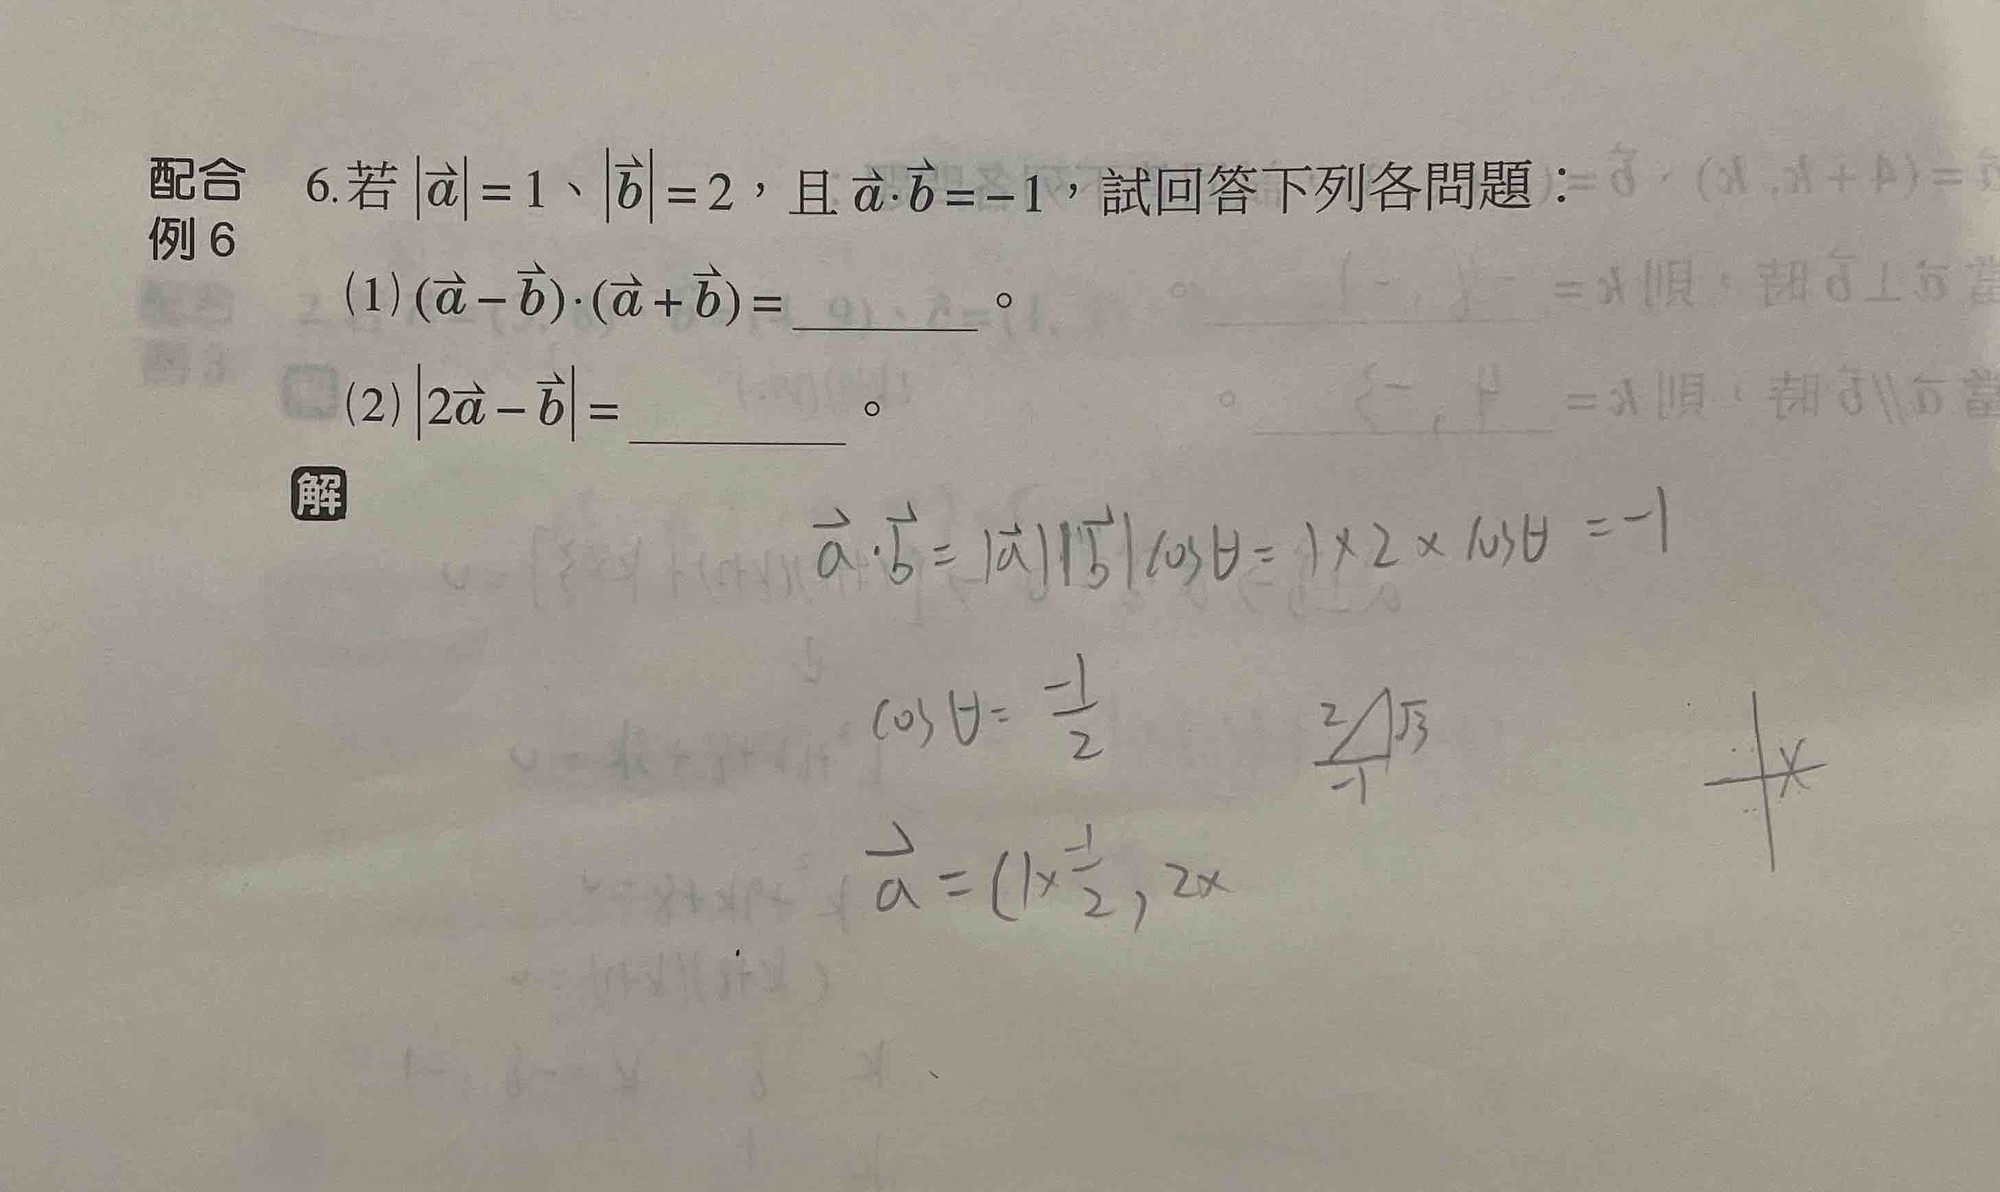 配合
例6
6.若 |a⃗|=1、|b⃗|=2，且 a⃗·b⃗=-1，試回答下列各問題：
(1)(a⃗-b⃗)·(a⃗+b⃗)=______。
(2)|2a⃗-b⃗|=______。
解
a⃗·b⃗=|a⃗||b⃗|cosθ=1×2×cosθ=-1
cosθ=-1/2
2 √3
-1
a⃗=(1×-1/2, 2×